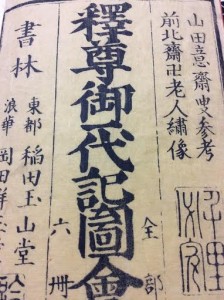 山田意齋叟参考
前北齋卍老人繡像
釋尊御代記圖會
全部
六冊
書林
東都 稲田玉山堂
浪華 岡田群玉